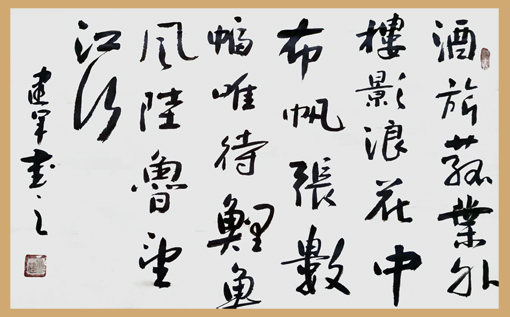 酒旂菰葉外
樓影浪花中
布帆張數
幅唯待鯉魚
風陸魯望
江行
建军書之